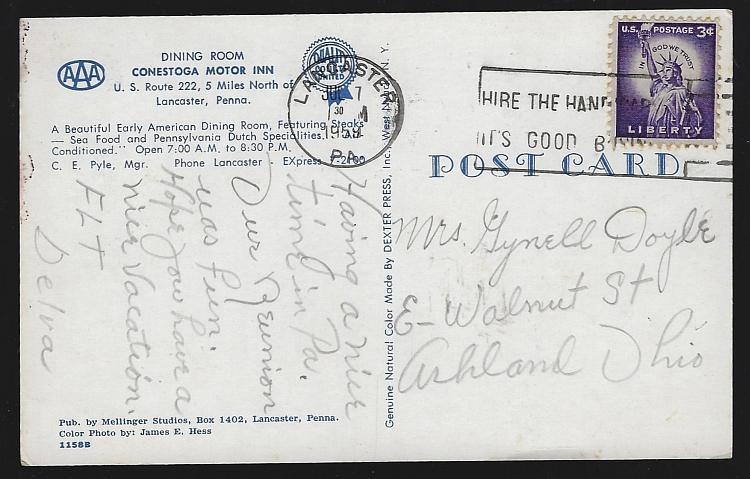 AAA
DINING ROOM
CONESTOGA MOTOR INN
U. S. Route 222, 5 Miles North of
Lancaster, Penna.
A Beautiful Early American Dining Room, Featuring Steaks
— Sea Food and Pennsylvania Dutch Specialities.
Conditioned." Open 7:00 A.M. to 8:30 P.M.
C. E. Pyle, Mgr. Phone Lancaster EXpress
QUALITY
COURTS
UNITED
LANCASTER
JUL 7
30
M
1959
PA.
HIRE THE
IT'S GOOD
U.S. POSTAGE 3¢
IN GOD WE TRUST
LIBERTY
POST CARD
Having a nice
time in Pa.
Our Reunion
was fun.
Hope you have a
nice vacation.
Delva
Mrs. Gynell Doyle
E- Walnut St
Ashland Ohio
Genuine Natural Color Made By DEXTER PRESS, Inc., West N. Y.
Pub. by Mellinger Studios, Box 1402, Lancaster, Penna.
Color Photo by: James E. Hess
1158B